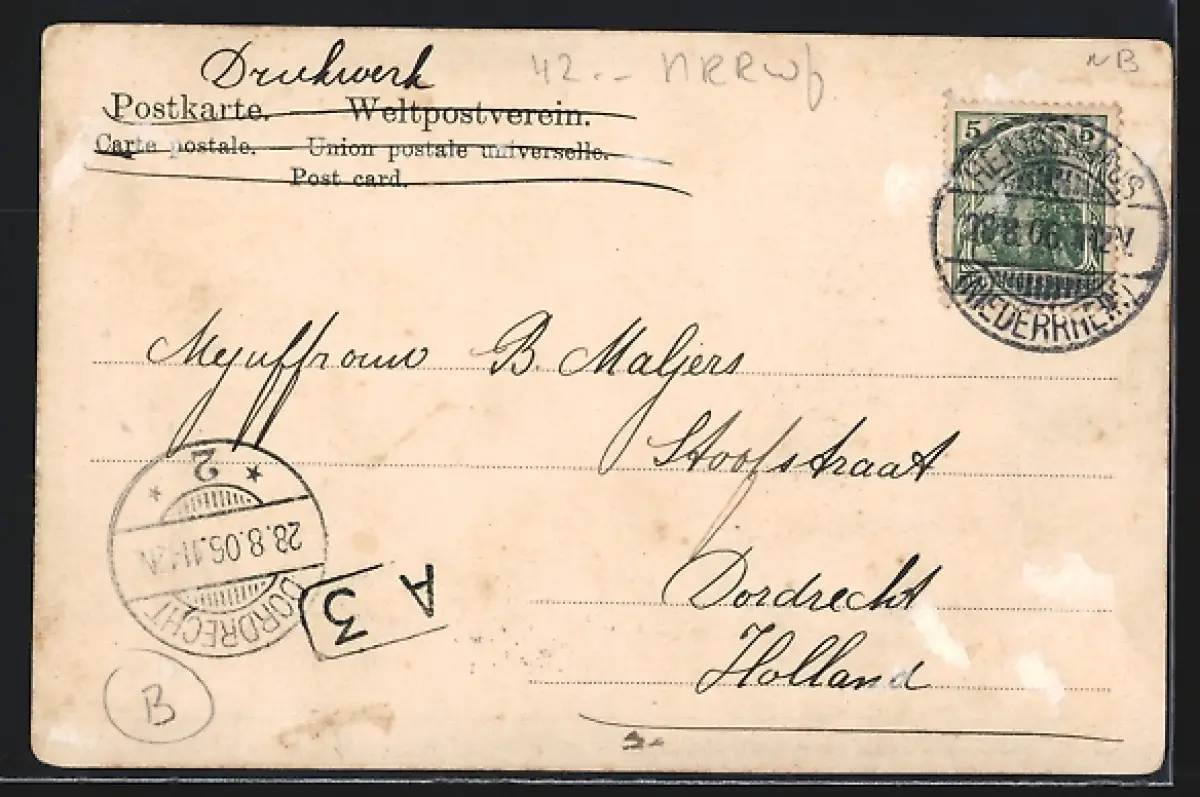 Drukwerk
42.-- NRRWf
NB
Postkarte. — Weltpostverein.
Carte postale. — Union postale universelle.
Post card.
5 5
28.8.06. 12V.
(NIEDERRHEIN)
Mejuffrouw B. Maljers
Stoofstraat
Dordrecht
Holland
2
28.8.06.11-12N
DORDRECHT
A 3
B